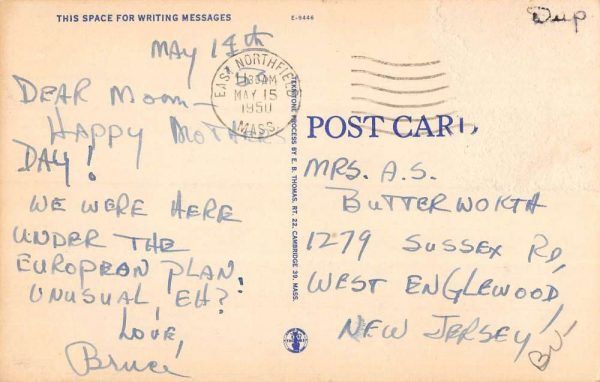 THIS SPACE FOR WRITING MESSAGES
E-9446
Dup
MAY 14th
DEAR MOM—
HAPPY MOTHERS
DAY!
WE WERE HERE
UNDER THE
EUROPEAN PLAN.
UNUSUAL, EH?
LOVE,
Bruce
EAST NORTHFIELD
MAY 15
1950
MASS.
TEKSTONE PROCESS BY E. B. THOMAS, RT. 22, CAMBRIDGE 39, MASS.
POST CARD
MRS. A.S.
BUTTERWORTH
1279 SUSSEX RD,
WEST ENGLEWOOD,
NEW JERSEY